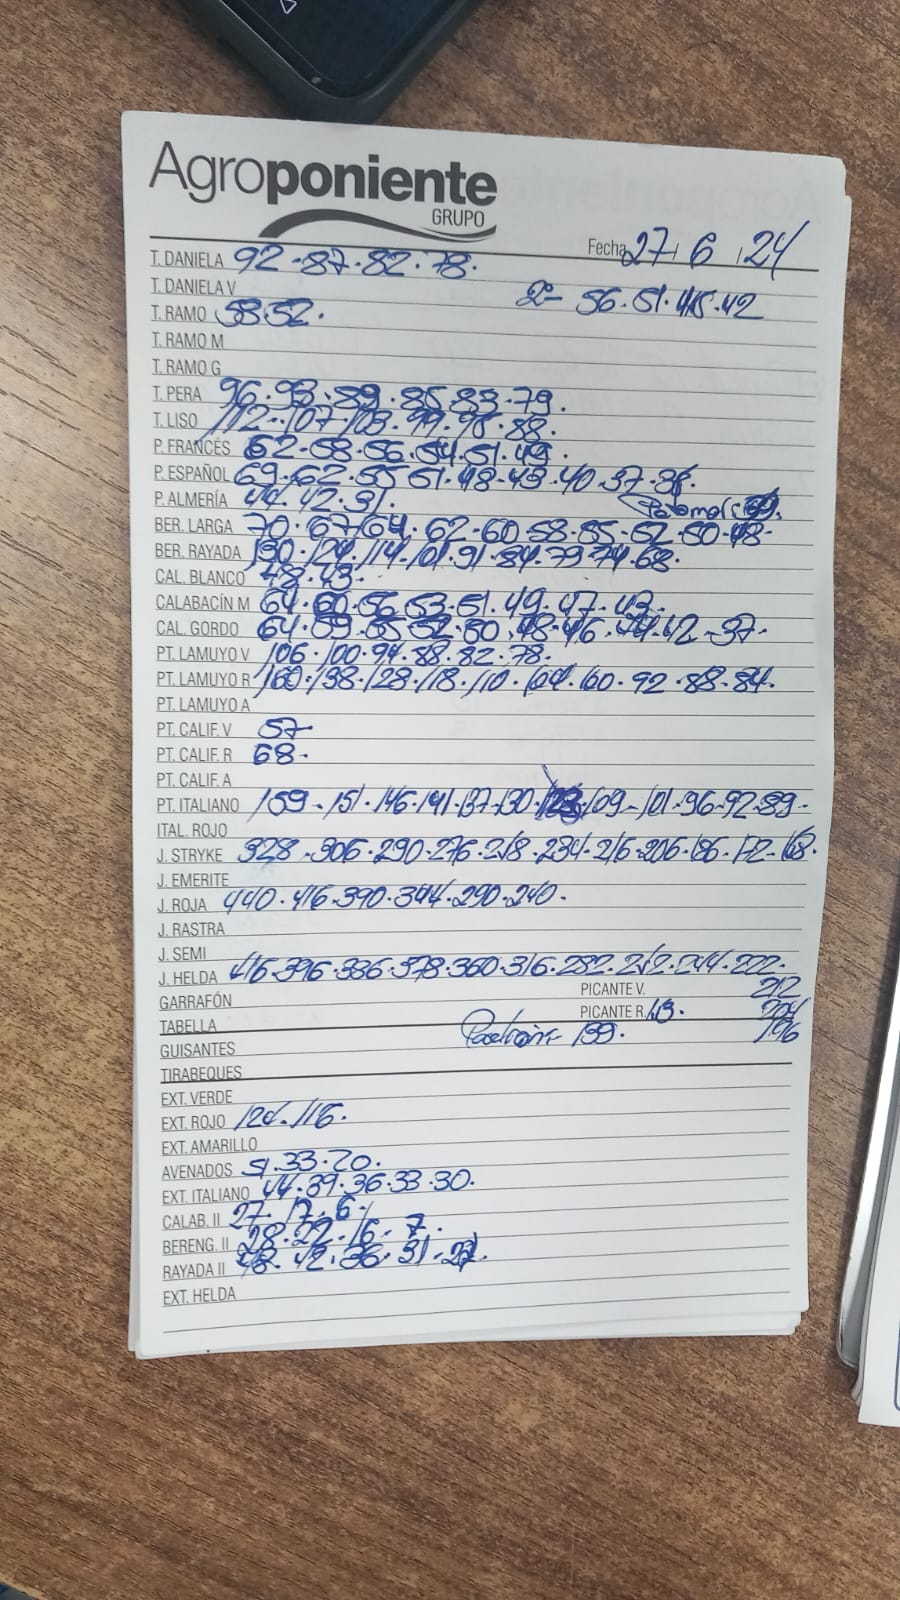 Agroponiente
GRUPO
Fecha 27 / 6 / 24
T. DANIELA 92.87.82.78.
T. DANIELA V 2ª- 56.51.45.42
T. RAMO 58.52.
T. RAMO M
T. RAMO G
T. PERA 96.93.89.85.83.79.
T. LISO 112.107.103.99.95.88.
P. FRANCÉS 62.58.56.54.51.49.
P. ESPAÑOL 69.62.55.51.48.43.40.37.34.
P. ALMERÍA 44.42.31.
BER. LARGA 70.67.64.62.60.58.55.52.50.48.
BER. RAYADA 130.124.114.101.91.84.79.74.68.
CAL. BLANCO 48.43.
CALABACÍN M 64.60.56.53.51.49.47.43.
CAL. GORDO 64.59.55.52.50.48.46.44.42.37.
PT. LAMUYO V 106.100.94.88.82.78.
PT. LAMUYO R 160.138.128.118.110.104.100.92.88.84.
PT. LAMUYO A
PT. CALIF. V 57
PT. CALIF. R 68.
PT. CALIF. A
PT. ITALIANO 159.151.146.141.137.130.123.109.101.96.92.89.
ITAL. ROJO
J. STRYKE 328.306.290.276.234.216.206.186.172.168.
J. EMERITE
J. ROJA 440.416.390.344.290.240.
J. RASTRA
J. SEMI
J. HELDA 416.396.386.378.360.316.282.244.222.
GARRAFÓN PICANTE V. 212
TABELLA PICANTE R. 113. 204
GUISANTES Padrón 199. 196
TIRABEQUES
EXT. VERDE
EXT. ROJO 124.116.
EXT. AMARILLO
AVENADOS 51.33.20.
EXT. ITALIANO 44.39.36.33.30.
CALAB. II 27.17.6.
BERENG. II 28.22.16.7.
RAYADA II 48.42.36.31.27.
EXT. HELDA